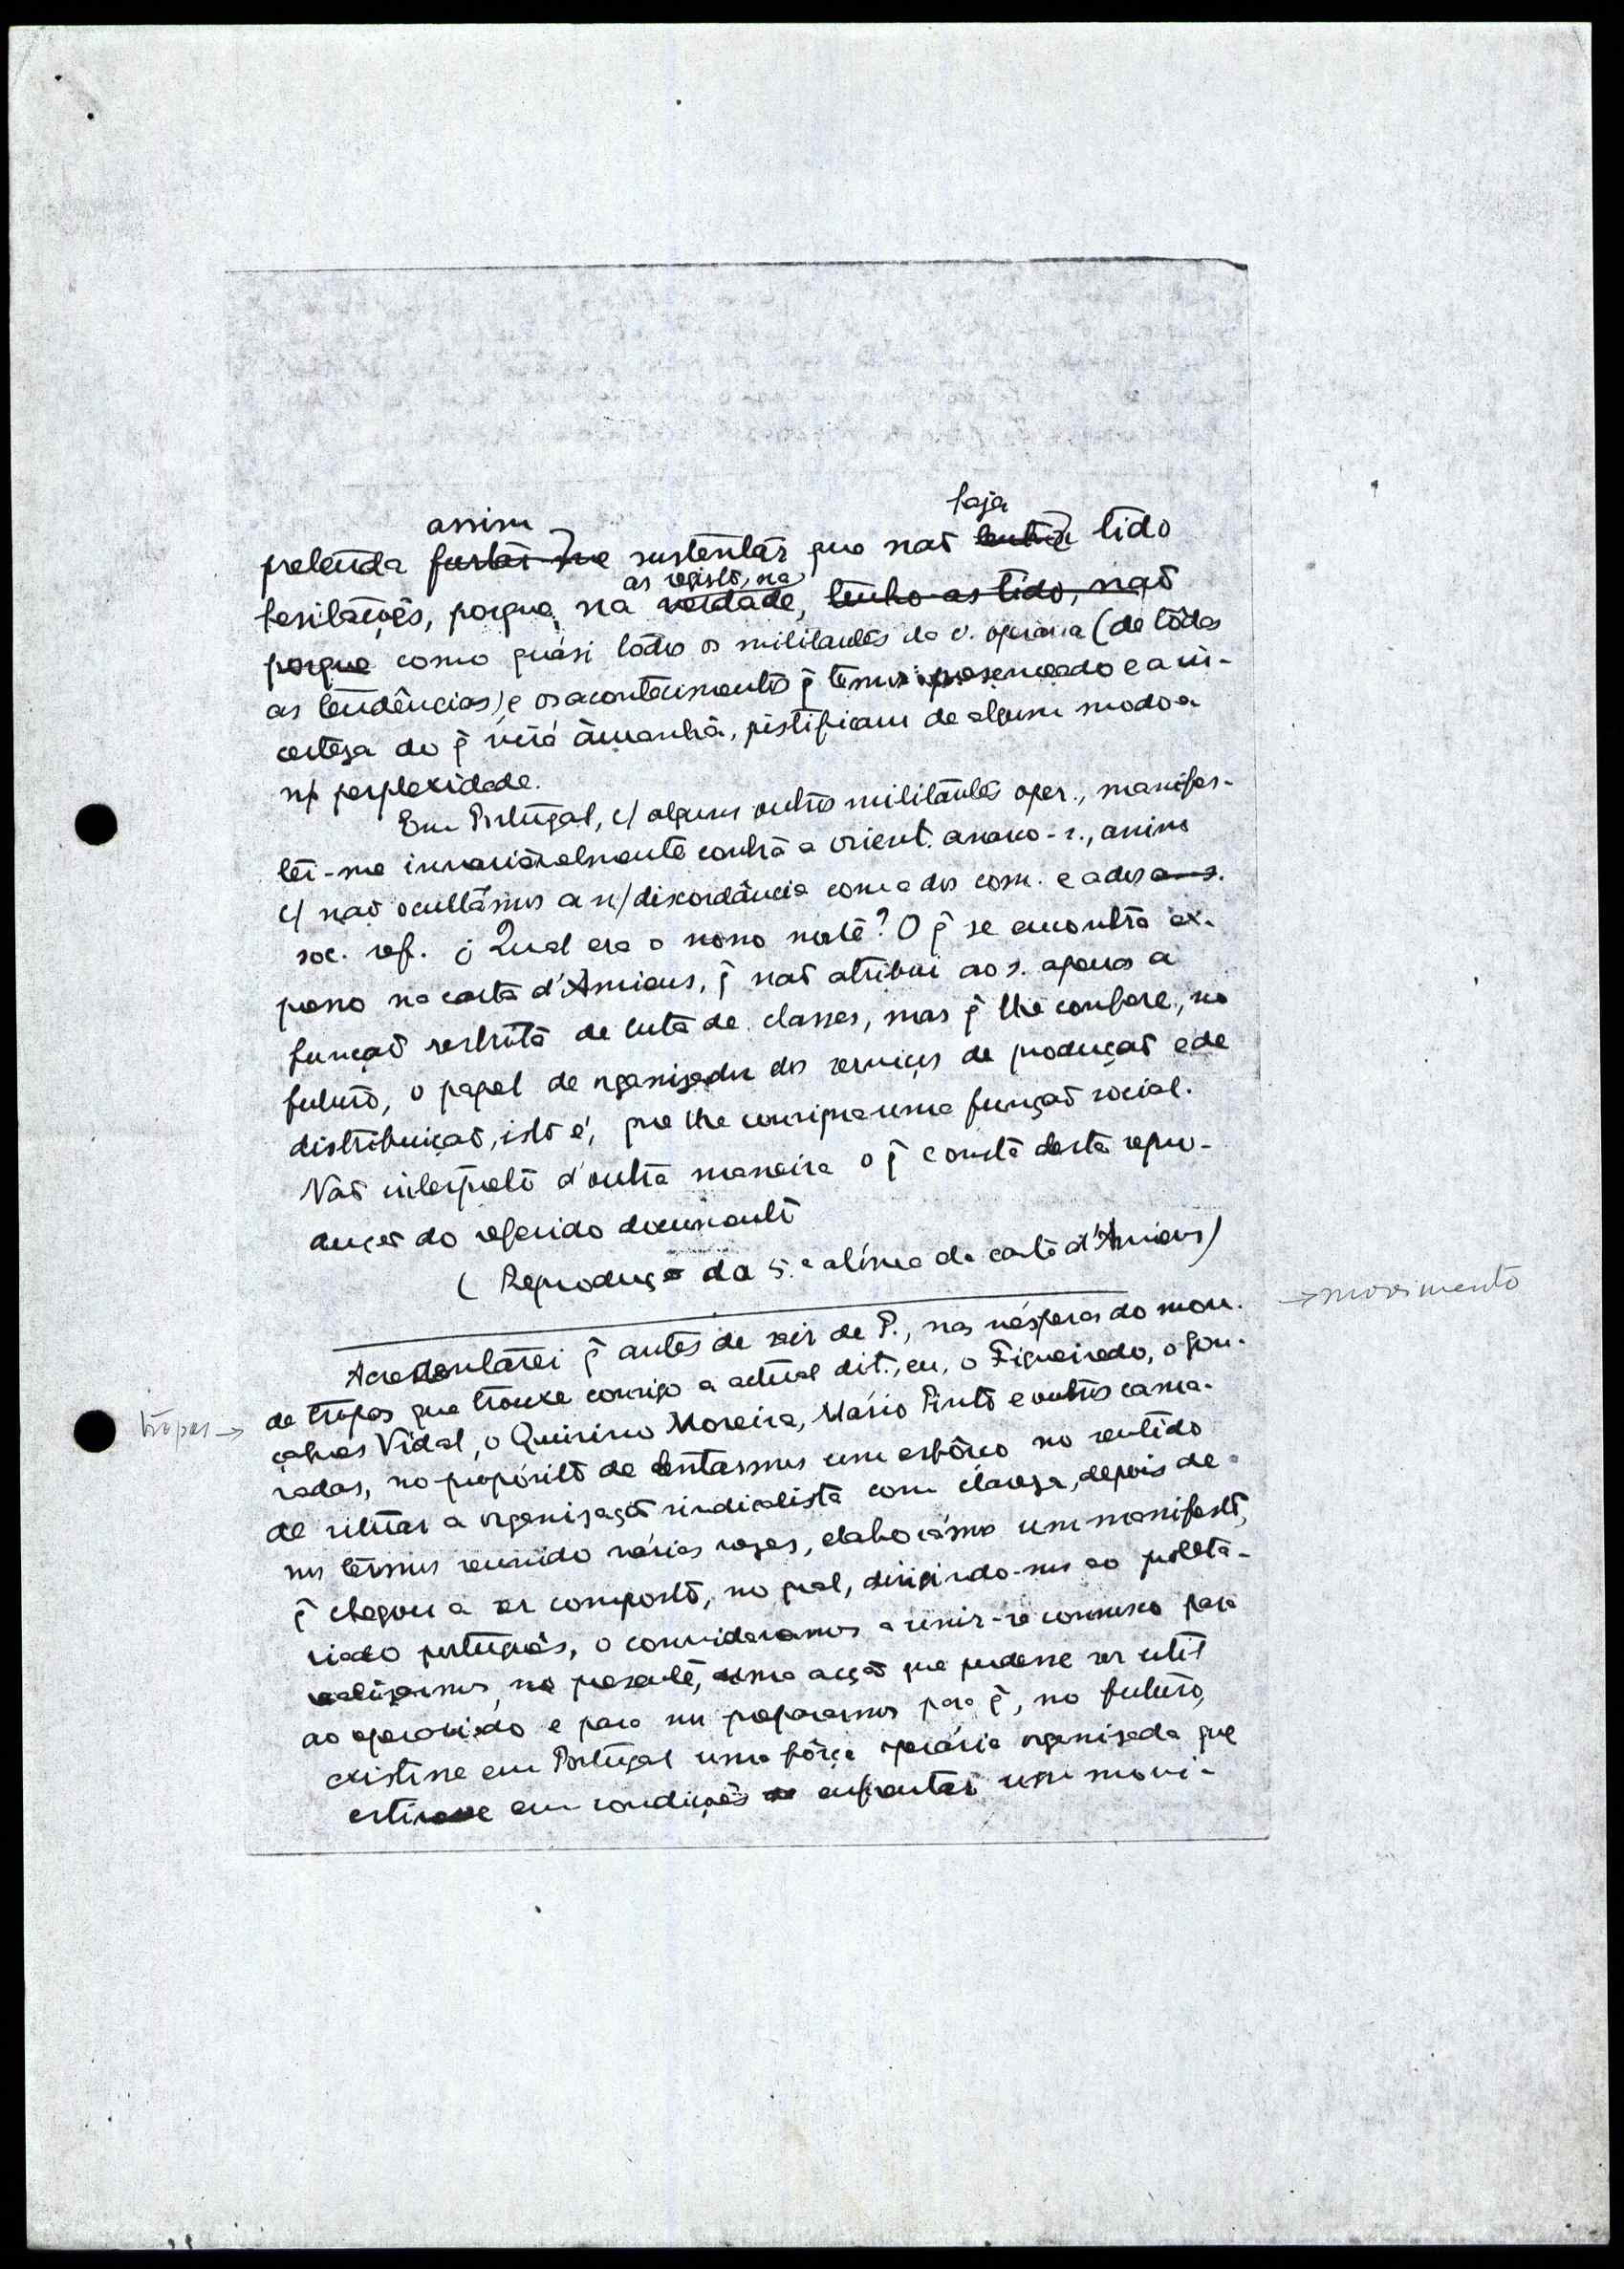 assim
haja
pretenda furtar-me sustentar que não tenha tido
as registo, na
hesitações, porque, na verdade, tenho-as tido, não
porque como quási todos os militantes da o. operária (de tôdas
as tendências) e os acontecimentos q̃ temos presenceado e a in-
certeza do q̃ virá àmanhã, justificam de algum modo a
n/ perplexidade.
Em Portugal, c/ alguns outros militantes oper., manifes-
tei-me invariàvelmente contra a orient. anarco-s., assim
c/ não ocultámos a n/ discordância com a dos com. e a dos
soc. ref. ¿Qual era o nosso norte? O q̃ se encontra ex-
posso na carta d'Amiens, q̃ não atribui ao s. apenas a
função restrita de luta de classes, mas q̃ lhe confere, no
futuro, o papel de organisador dos serviços de produção e de
distribuição, isto é, que lhe consigna uma função social.
Não interpreto d'outra maneira o q̃ consta desta repro-
dução do referido documento
(Reprodução da 5.ª alínea da carta d'Amiens)
Acrescentarei q̃ antes de sair de P., nas vésperas do mov.
→ movimento
de tropas que trouxe consigo a actual dit., eu, o Figueiredo, o Gon-
tropas →
çalves Vidal, o Quirino Moreira, Mário Pinto e outros cama-
radas, no propósito de tentarmos um esfôrço no sentido
de situar a organisação sindicalista com clareza, depois de
nos termos reunido várias vezes, elaborámos um manifesto,
q̃ chegou a ser composto, no qual, dirigindo-nos ao proleta-
riado português, o convidavamos a reunir-se connosco para
realizarmos, no presente, uma acção que pudesse ser util
ao operariado e para nos prepararmos para q̃, no futuro,
existisse em Portugal uma fôrça operária organisada que
estivesse em condições de enfrentar um movi-